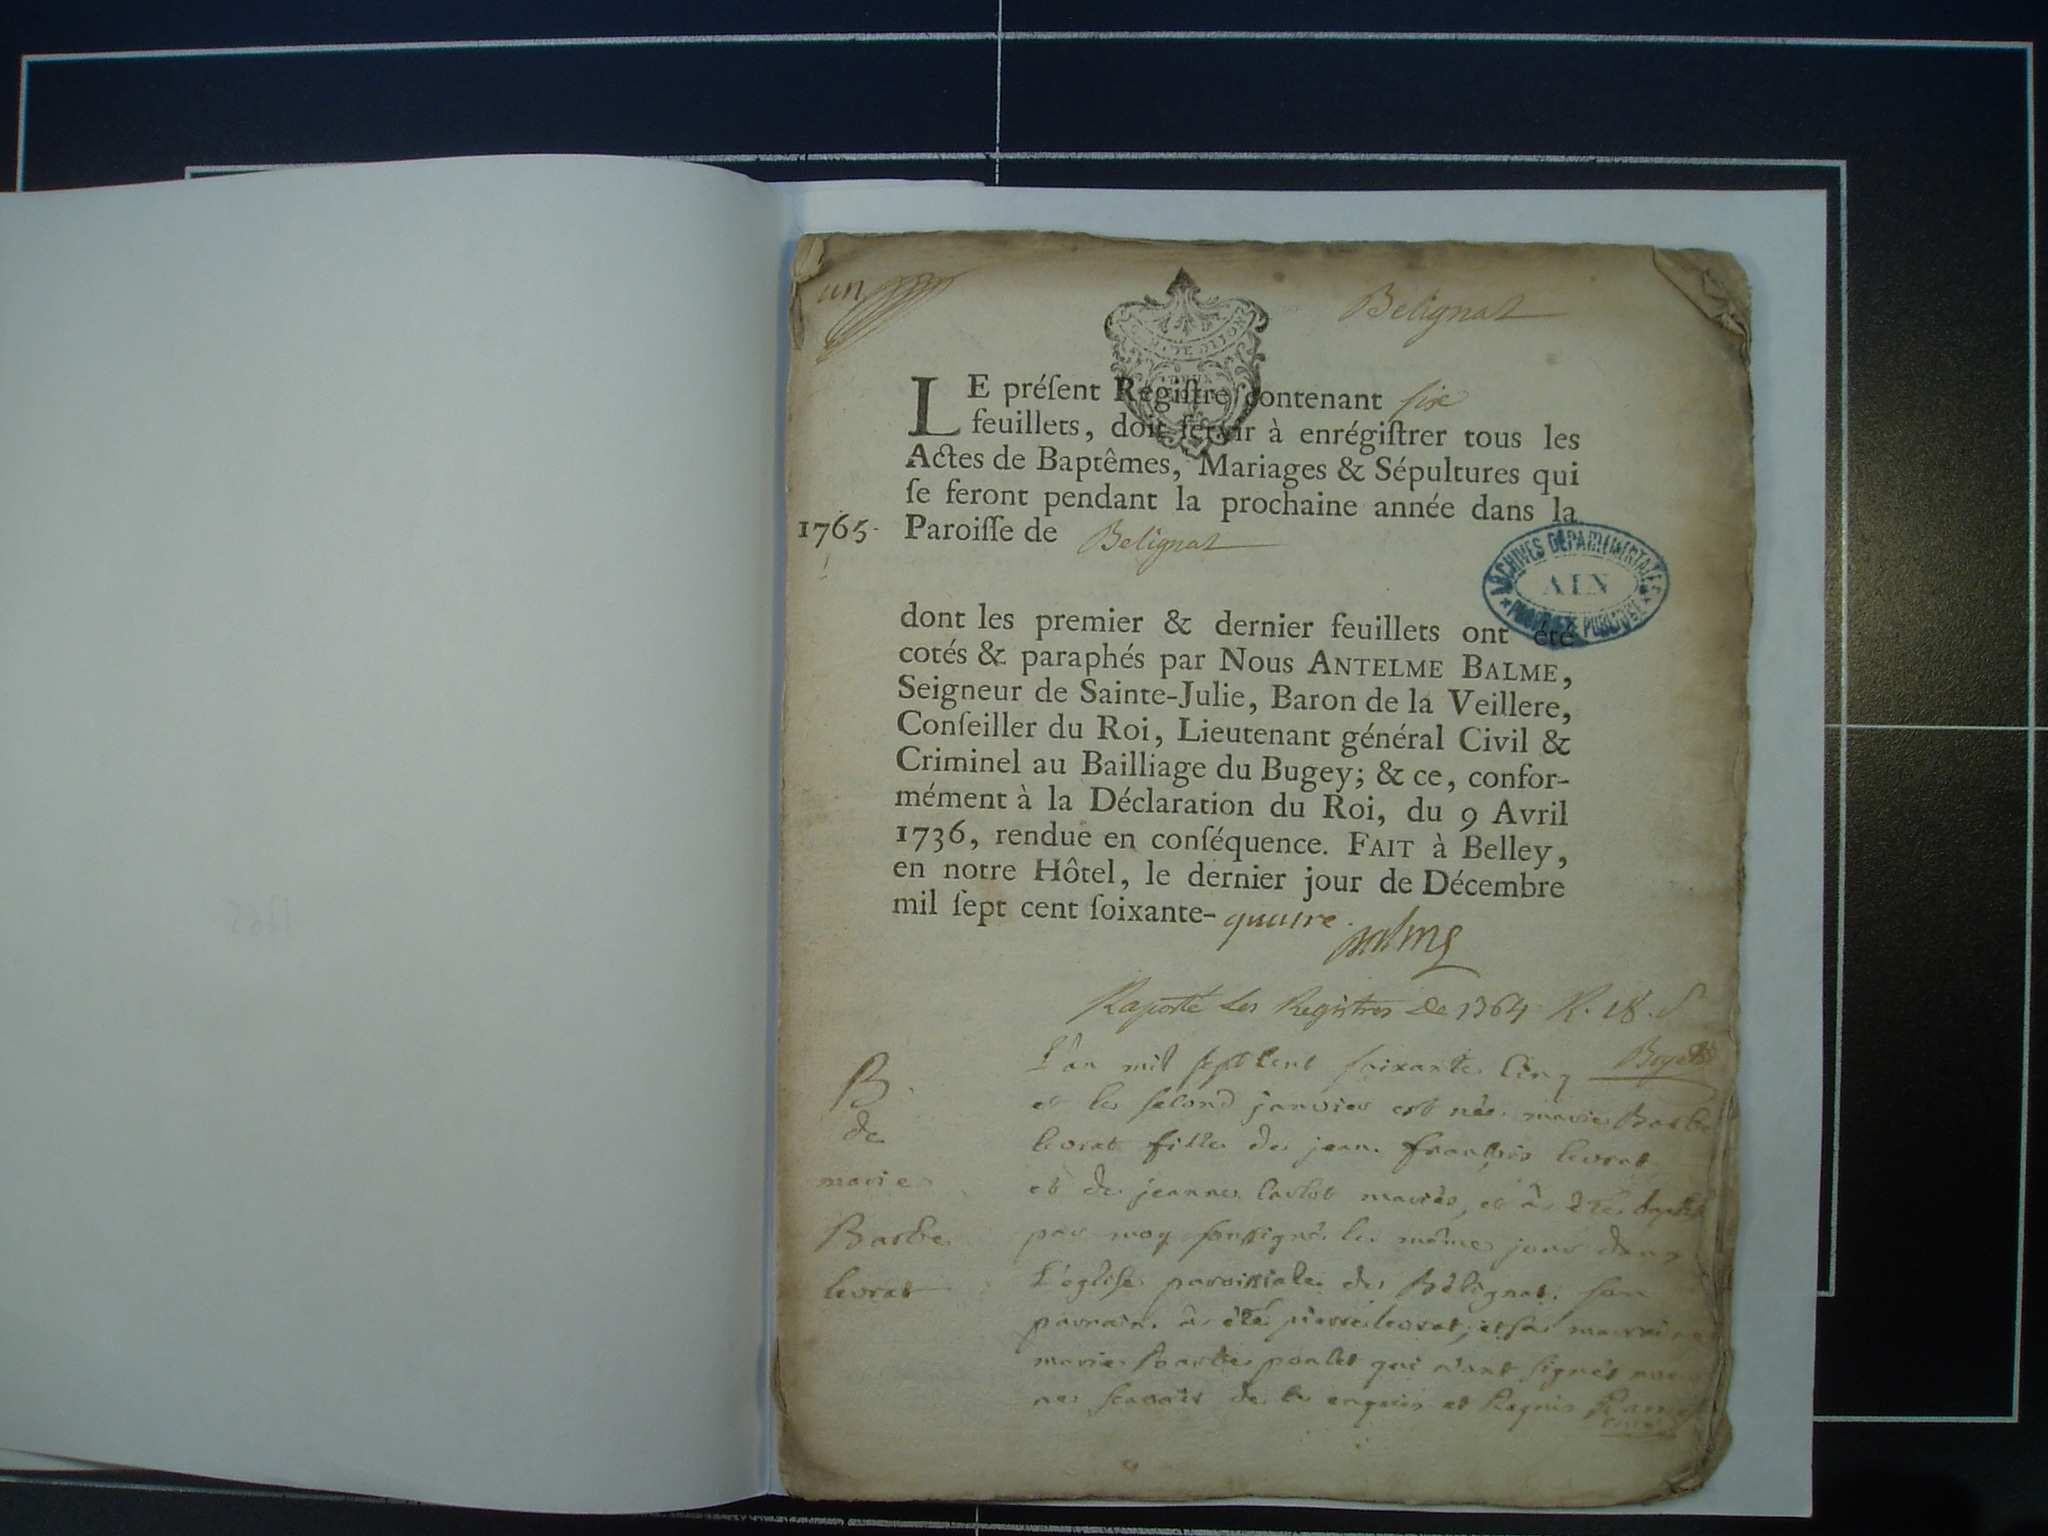 un
Belignat
LE préſent Regiſtre contenant six
feuillets, doit ſervir à enrégiſtrer tous les
Actes de Baptêmes, Mariages & Sépultures qui
ſe feront pendant la prochaine année dans la
1765. Paroiſſe de Belignat
ARCHIVES DÉPARTEMENTALES
AIN
PROPRIÉTÉ PUBLIQUE
dont les premier & dernier feuillets ont été
cotés & paraphés par Nous ANTELME BALME,
Seigneur de Sainte-Julie, Baron de la Veillere,
Conſeiller du Roi, Lieutenant général Civil &
Criminel au Bailliage du Bugey; & ce, confor-
mément à la Déclaration du Roi, du 9 Avril
1736, rendue en conſéquence. FAIT à Belley,
en notre Hôtel, le dernier jour de Décembre
mil ſept cent ſoixante-quatre.
Balme
Raporté les Registres de 1764 R. 18. s
B
de
marie
Barbe
levrat
L'an mil sept cent soixante cinq
et le second janvier est née marie Barbe
levrat fille de jean françois levrat
et de jeanne mariés, et à été baptisé
par moy soussigné le même jour dans
L'église paroissiale de Bélignat. son
parrain à été pierre levrat, et sa marraine
marie Barbe poulet qui n'ont signés pour
ne scavoir de ce enquis et Requis
curé